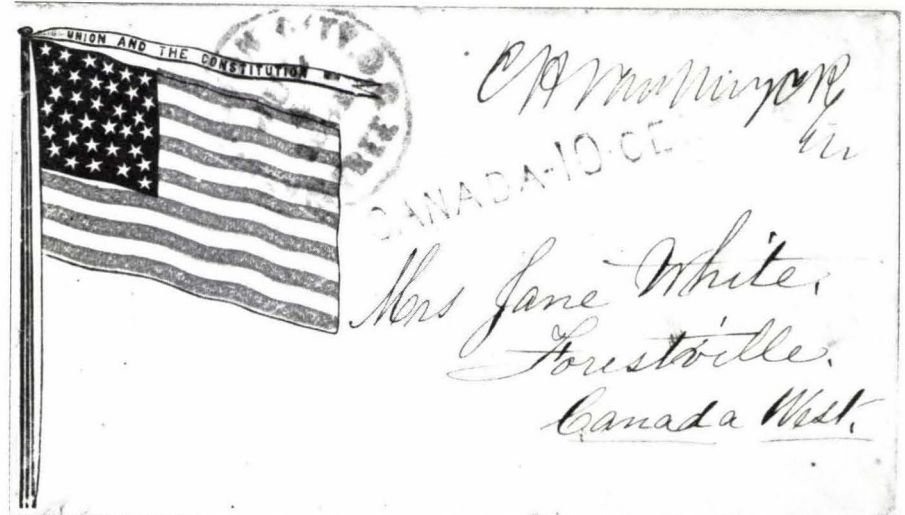 UNION AND THE CONSTITUTION
FREE
CANADA-10-CE
Mrs Jane White.
Forestville.
Canada West.